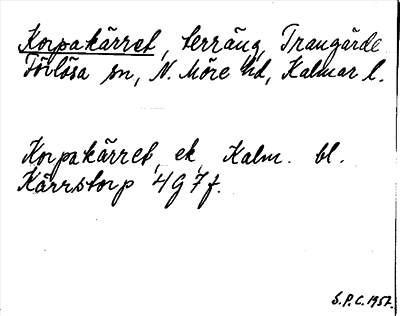 Korpakärret, terräng, Traugärde
Förlösa sn, N. Möre hd, Kalmar l.
Korpakärret, ek, Kalm. bl.
Kärrstorp 4G7f.
S.P.C. 1957.